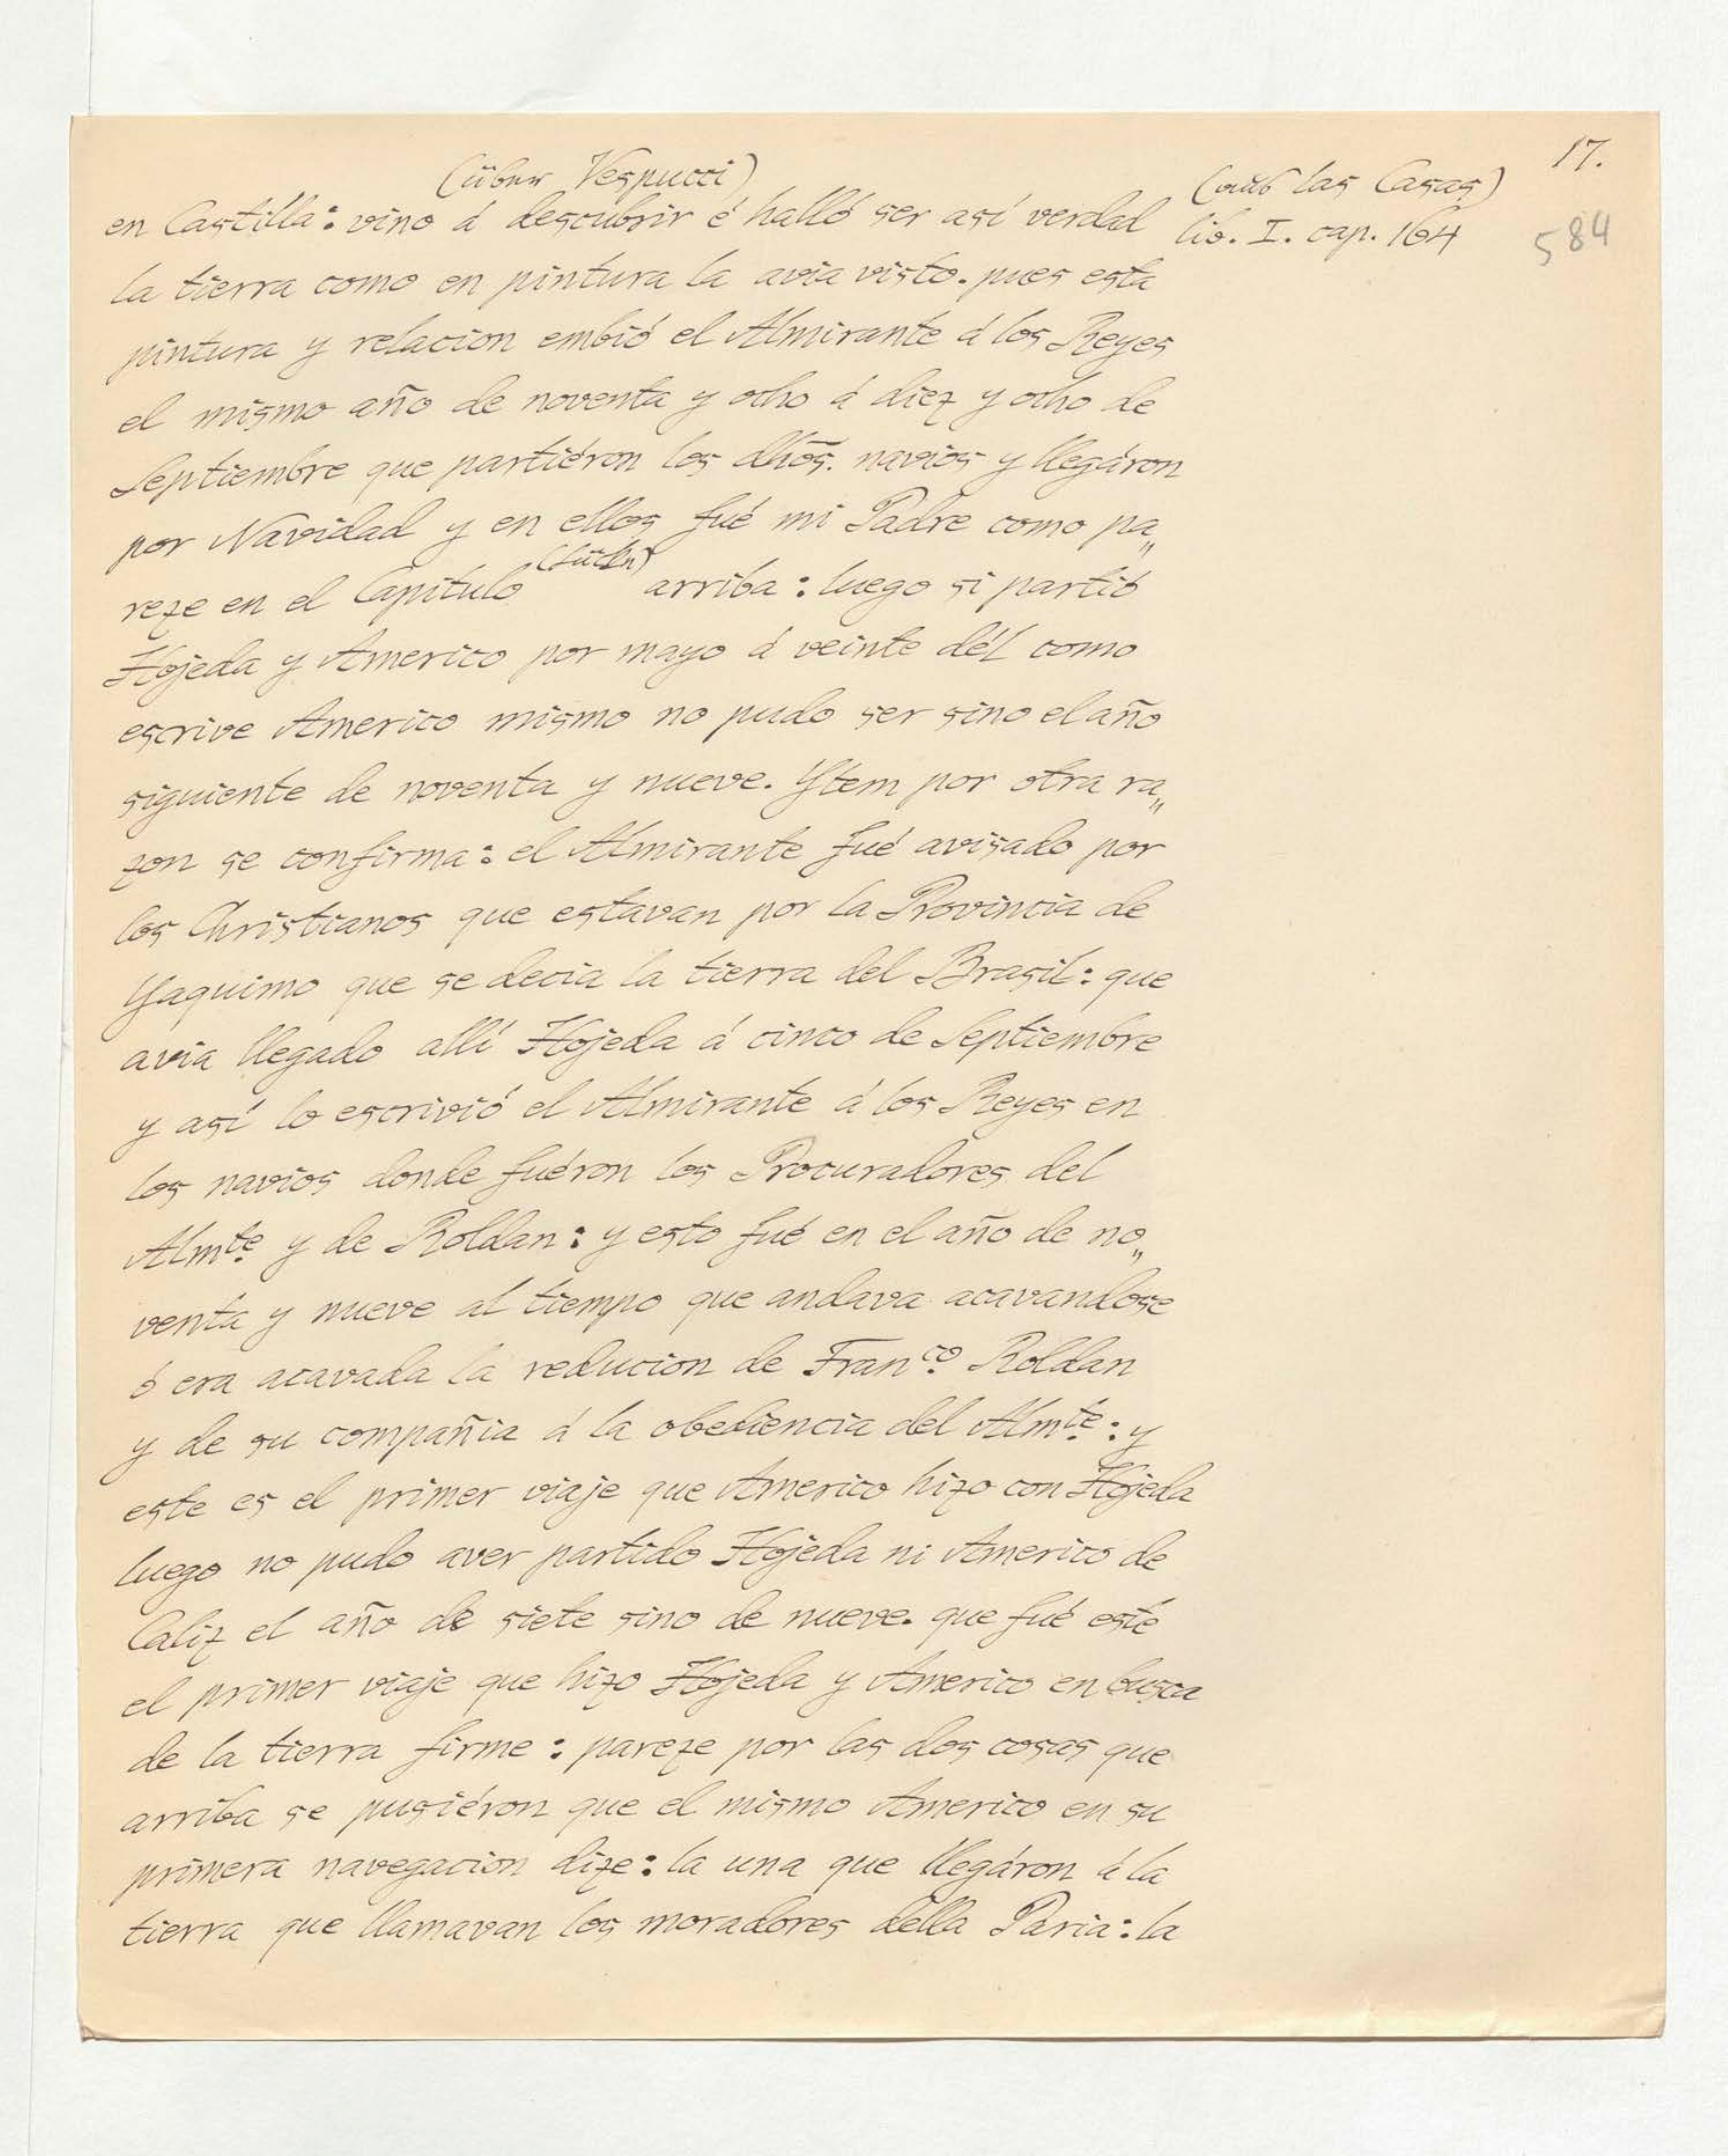 17.
(über Vespucci)
(aus las Casas)
en Castilla: vino á descubrir é halló ser así verdad
lib. I. cap. 164
584
la tierra como en pintura la avia visto. pues esta
pintura y relacion embió el Almirante á los Reyes
el mismo año de noventa y ocho á diez y ocho de
Septiembre que partiéron los dhōs. navios y llegáron
por Navidad y en ellos fué mi Padre como pa„
reze en el Capítulo (Lücke) arriba: luego si partió
Hojeda y Americo por mayo á veinte dél como
escrive Americo mismo no pudo ser sino el año
siguiente de noventa y nueve. Ytem por otra ra„
zon se confirma: el Almirante fué avisado por
los Christianos que estavan por la Provincia de
Yaquimo que se decia la tierra del Brasil: que
avia llegado allí Hojeda á cinco de Septiembre
y así lo escrivió el Almirante á los Reyes en
los navios donde fuéron los Procuradores del
Almte. y de Roldan: y esto fué en el año de no„
venta y nueve al tiempo que andava acavandose
ó era acavada la reducion de Franco. Roldan
y de su compañia á la obediencia del Almte.: y
este es el primer viaje que Americo hizo con Hojeda
luego no pudo aver partido Hojeda ni Americo de
Caliz el año de siete sino de nueve. que fué esté
el primer viaje que hizo Hojeda y Americo en busca
de la tierra firme: pareze por las dos cosas que
arriba se pusiéron que el mismo Americo en su
primera navegacion dize: la una que llegáron á la
tierra que llamavan los moradores della Paria: la